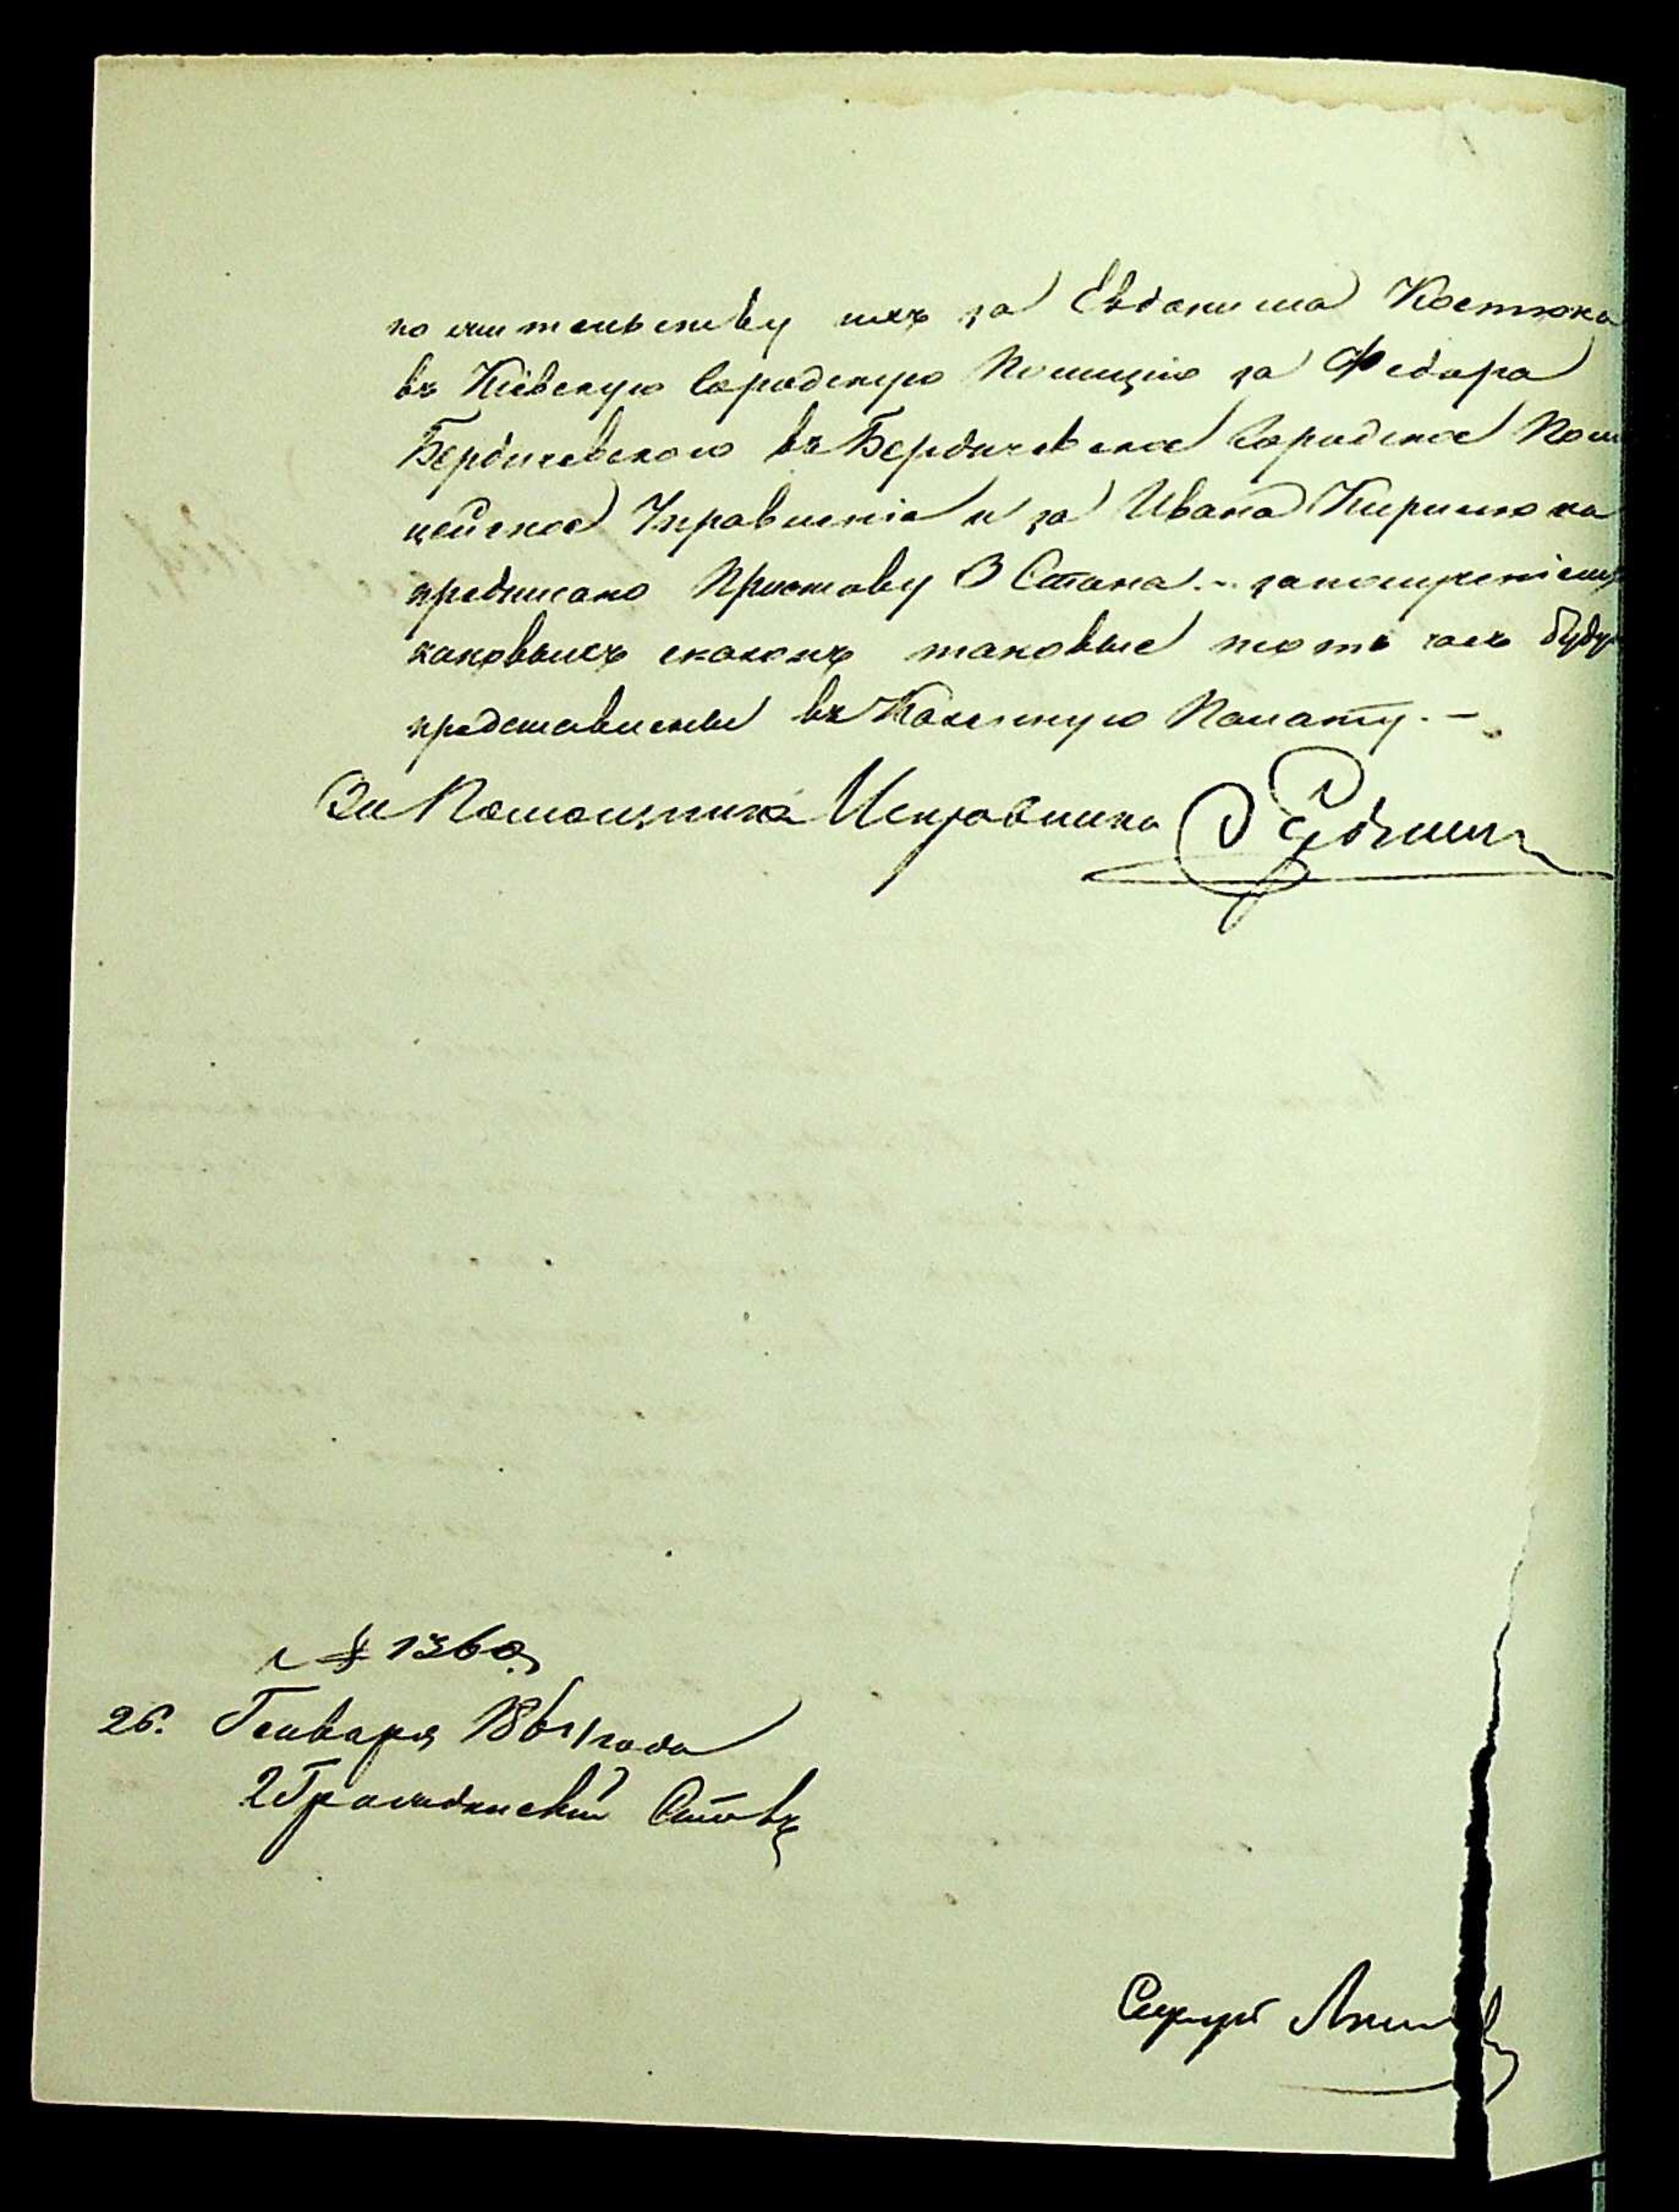 по жительству ихъ за Евдакима Костюка
въ Кіевскую Городскую Полицію за Федора
Бердичевского въ Бердичевское Городское Поли
цейское Управленіе и за Ивана Кирилюка
предписано Приставу 3 Стана. - за полученіемъ
каковыхъ сказокъ таковые тотъ часъ буду
представлены въ Казенную Палату. -
За Помощника Исправника
№ 1360
26. Генваря 1861 года
2 Гражданскій Столъ
Сергей